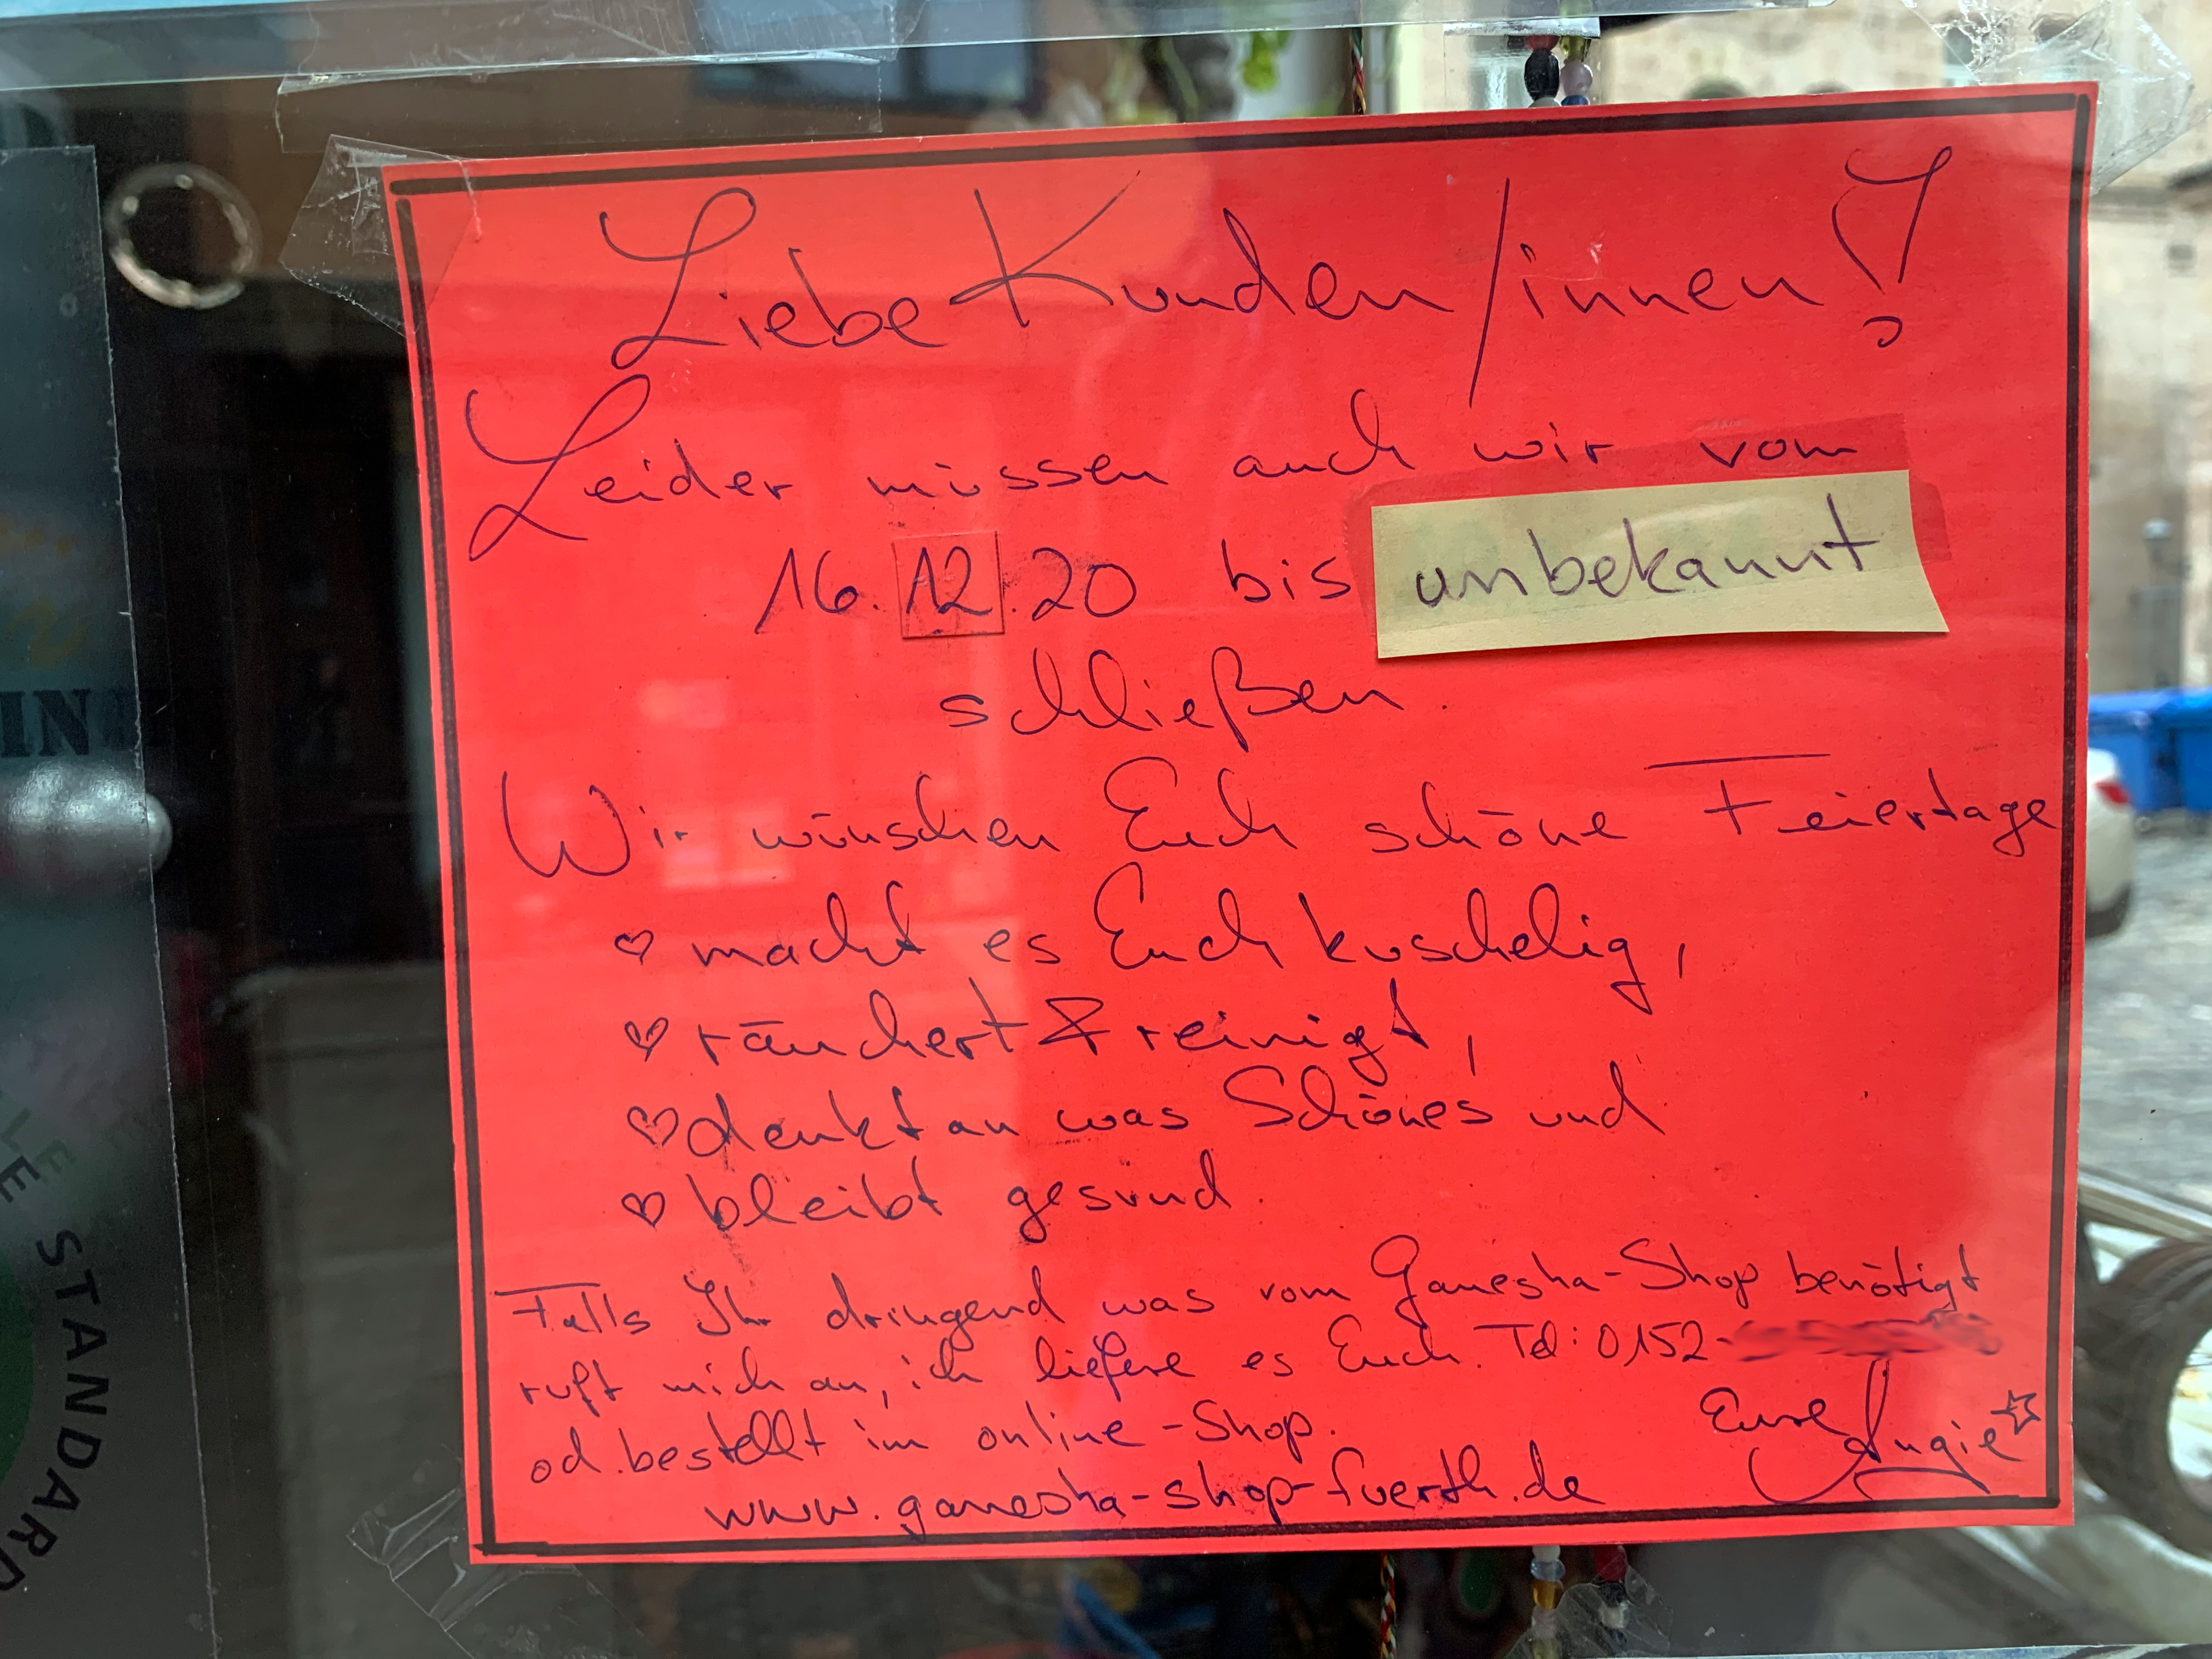 Liebe Kunden/innen!
Leider müssen auch wir vom
16.12.20 bis unbekannt
schließen.
Wir wünschen Euch schöne Feiertage
♡ macht es Euch kuschelig,
♡ räuchert & reinigt,
♡ denkt an was Schönes und
♡ bleibt gesund.
Falls Ihr dringend was vom Ganesha-Shop benötigt
ruft mich an, ich liefere es Euch. Tel: 0152-
od. bestellt im online-Shop.
Eure Angie ☆
www.ganesha-shop-fuerth.de
IN
STANDARD